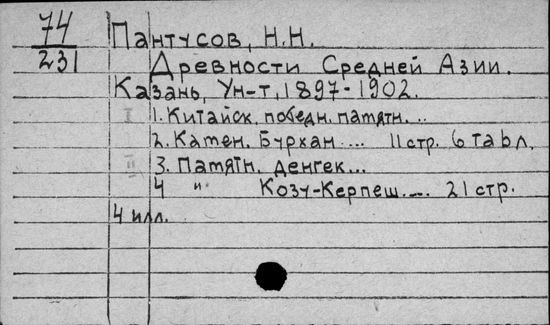 74
231
Пантусов, Н.Н.
Древности Средней Азии.
Казань, Ун-т, 1897-1902.
I 1. Китайск. победн. памятн. ...
2. Камен. Бурхан .... 11 стр. 6 табл.
II 3. Памятн. Денгек...
4 " Козу-Керпеш.... 21 стр.
4 илл.